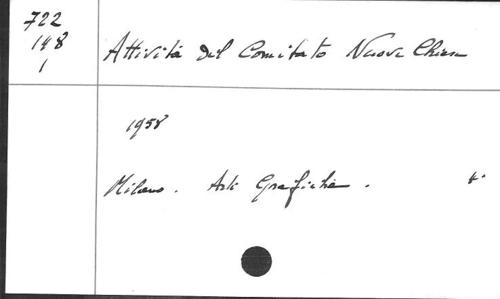 722
148
1
Attività del Comitato Nuove Chiese
1958
Milano. Arti Grafiche.